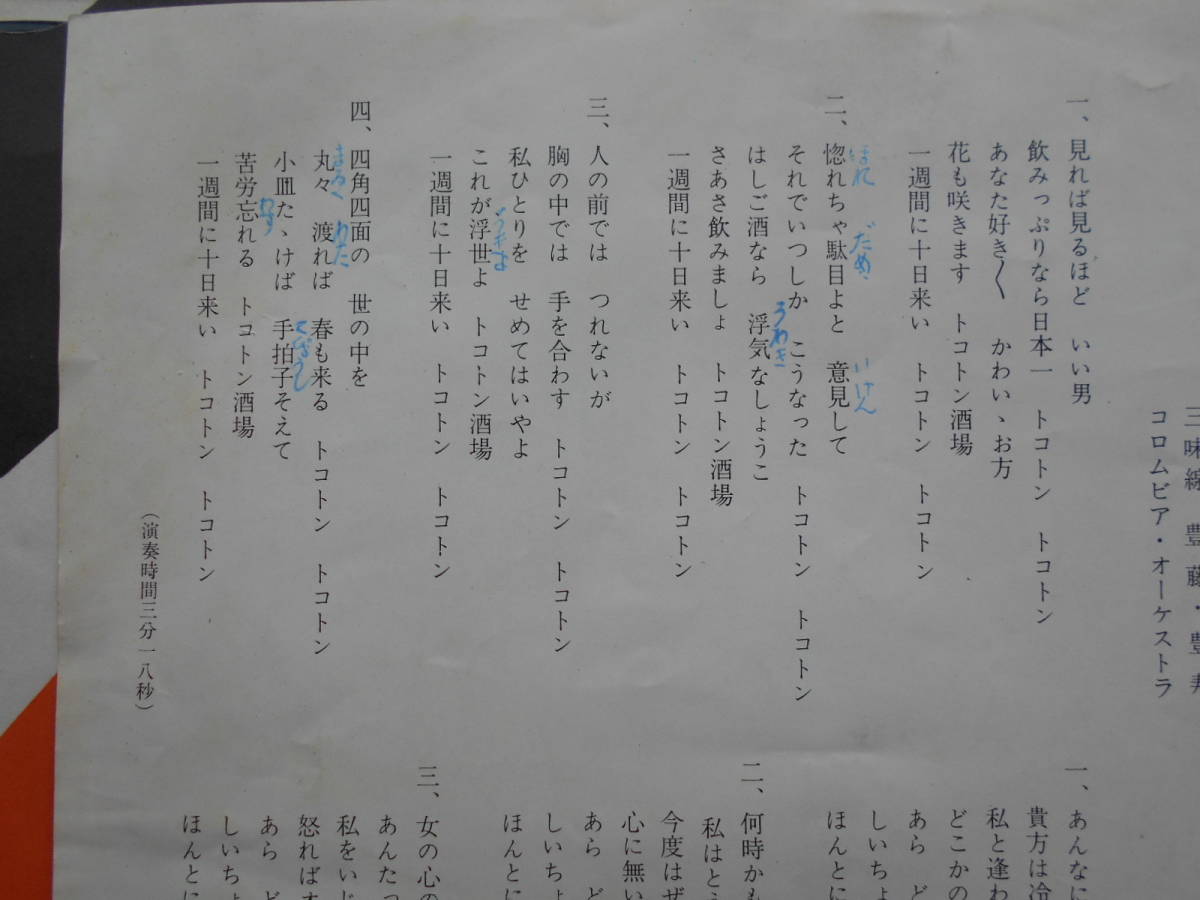 三味線 豊藤・豊
コロムビア・オーケストラ
一、見れば見るほど いい男
飲みっぷりなら日本一 トコトン トコトン
あなた好き〳〵 かわいゝお方
花も咲きます トコトン酒場
一週間に十日来い トコトン トコトン
ほれ だめ いけん
二、惚れちゃ駄目よと 意見して
それでいつしか こうなった トコトン トコトン
うわき
はしご酒なら 浮気なしょうこ
さあさ飲みましょ トコトン酒場
一週間に十日来い トコトン トコトン
三、人の前では つれないが
胸の中では 手を合わす トコトン トコトン
私ひとりを せめてはいやよ
うきよ
これが浮世よ トコトン酒場
一週間に十日来い トコトン トコトン
四、四角四面の 世の中を
まるく わた
丸々 渡れば 春も来る トコトン トコトン
てびょうし
小皿たゝけば 手拍子そえて
わす
苦労忘れる トコトン酒場
一週間に十日来い トコトン トコトン
（演奏時間三分一八秒）
一、あんなに
貴方は冷
私と逢わ
どこかの
あら ど
しいちょ
ほんとに
二、何時かも
私はとう
今度はぜ
心に無い
あら ど
しいちょ
ほんとに
三、女の心の
あんたっ
私をいじ
怒ればす
あら ど
しいちょ
ほんとに